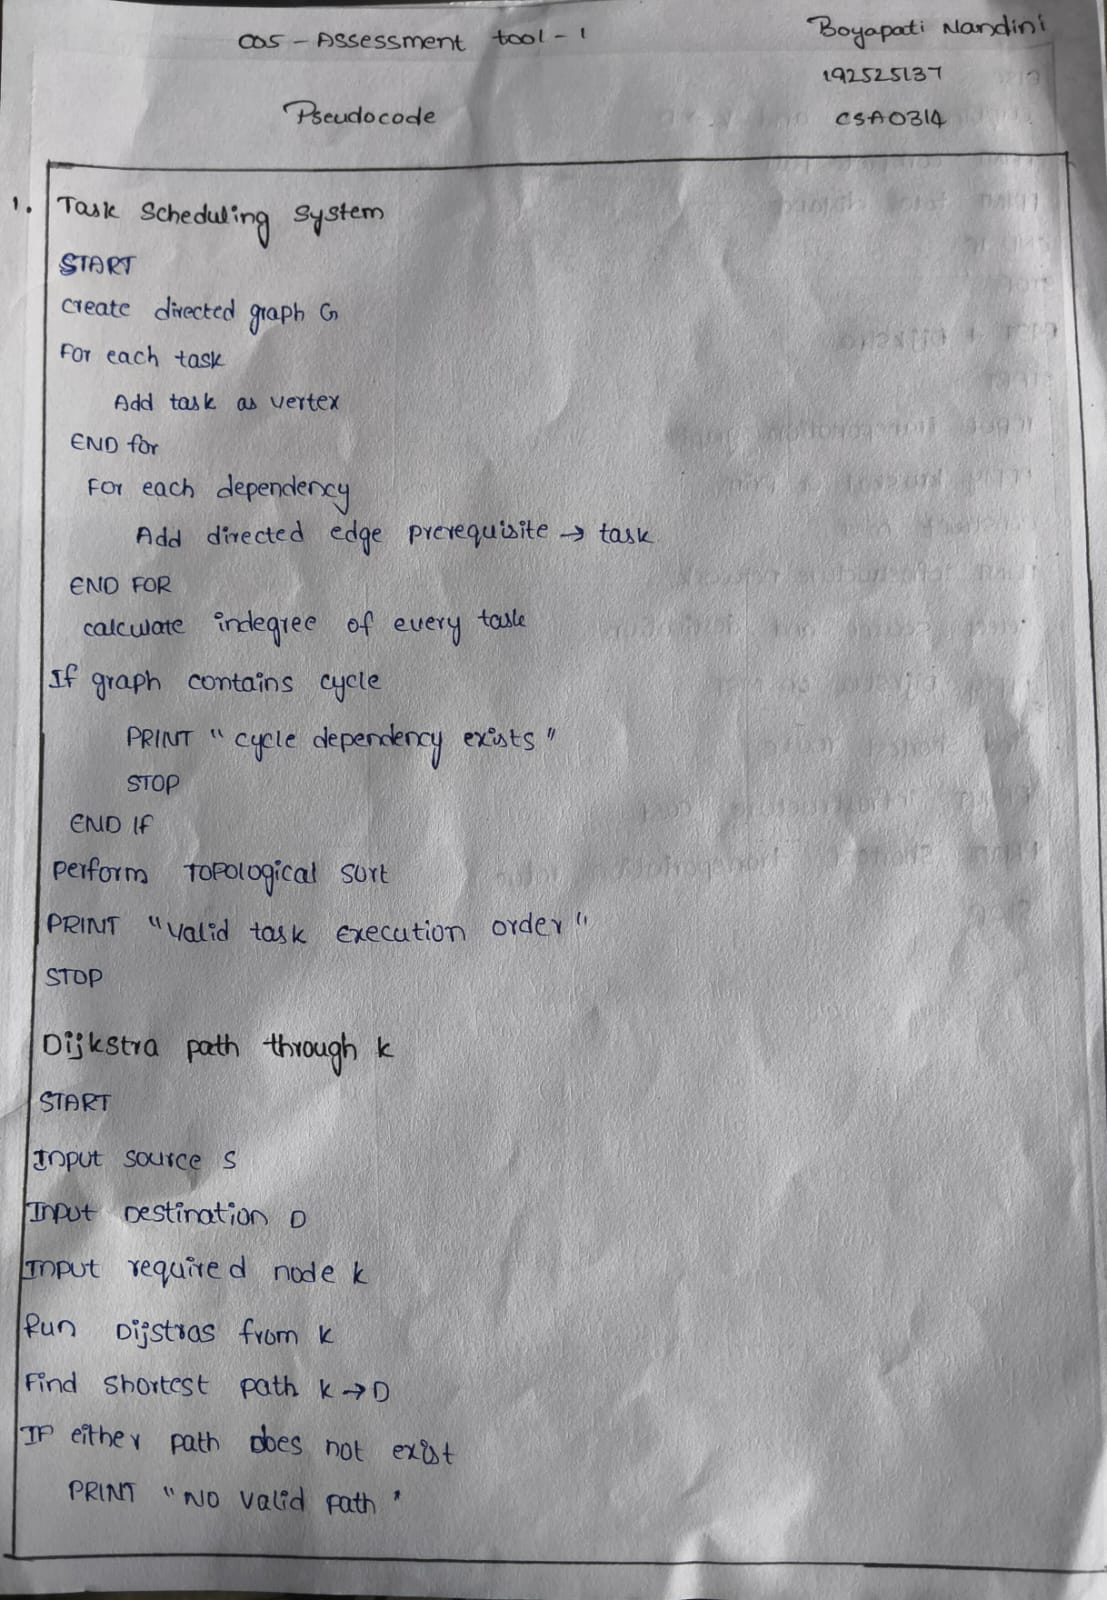 CO5 - Assessment tool - 1
Boyapati Nandini
192525137
Pseudocode
CSA0314
1. Task Scheduling System
START
Create directed graph G
For each task
Add task as vertex
END for
For each dependency
Add directed edge prerequisite → task
END FOR
calculate indegree of every task
If graph contains cycle
PRINT "cycle dependency exists"
STOP
END IF
Perform Topological Sort
PRINT "Valid task execution order"
STOP
Dijkstra path through k
START
Input source S
Input Destination D
Input required node k
Run Dijstras from k
Find shortest path k → D
IF either path does not exist
PRINT "No valid path"